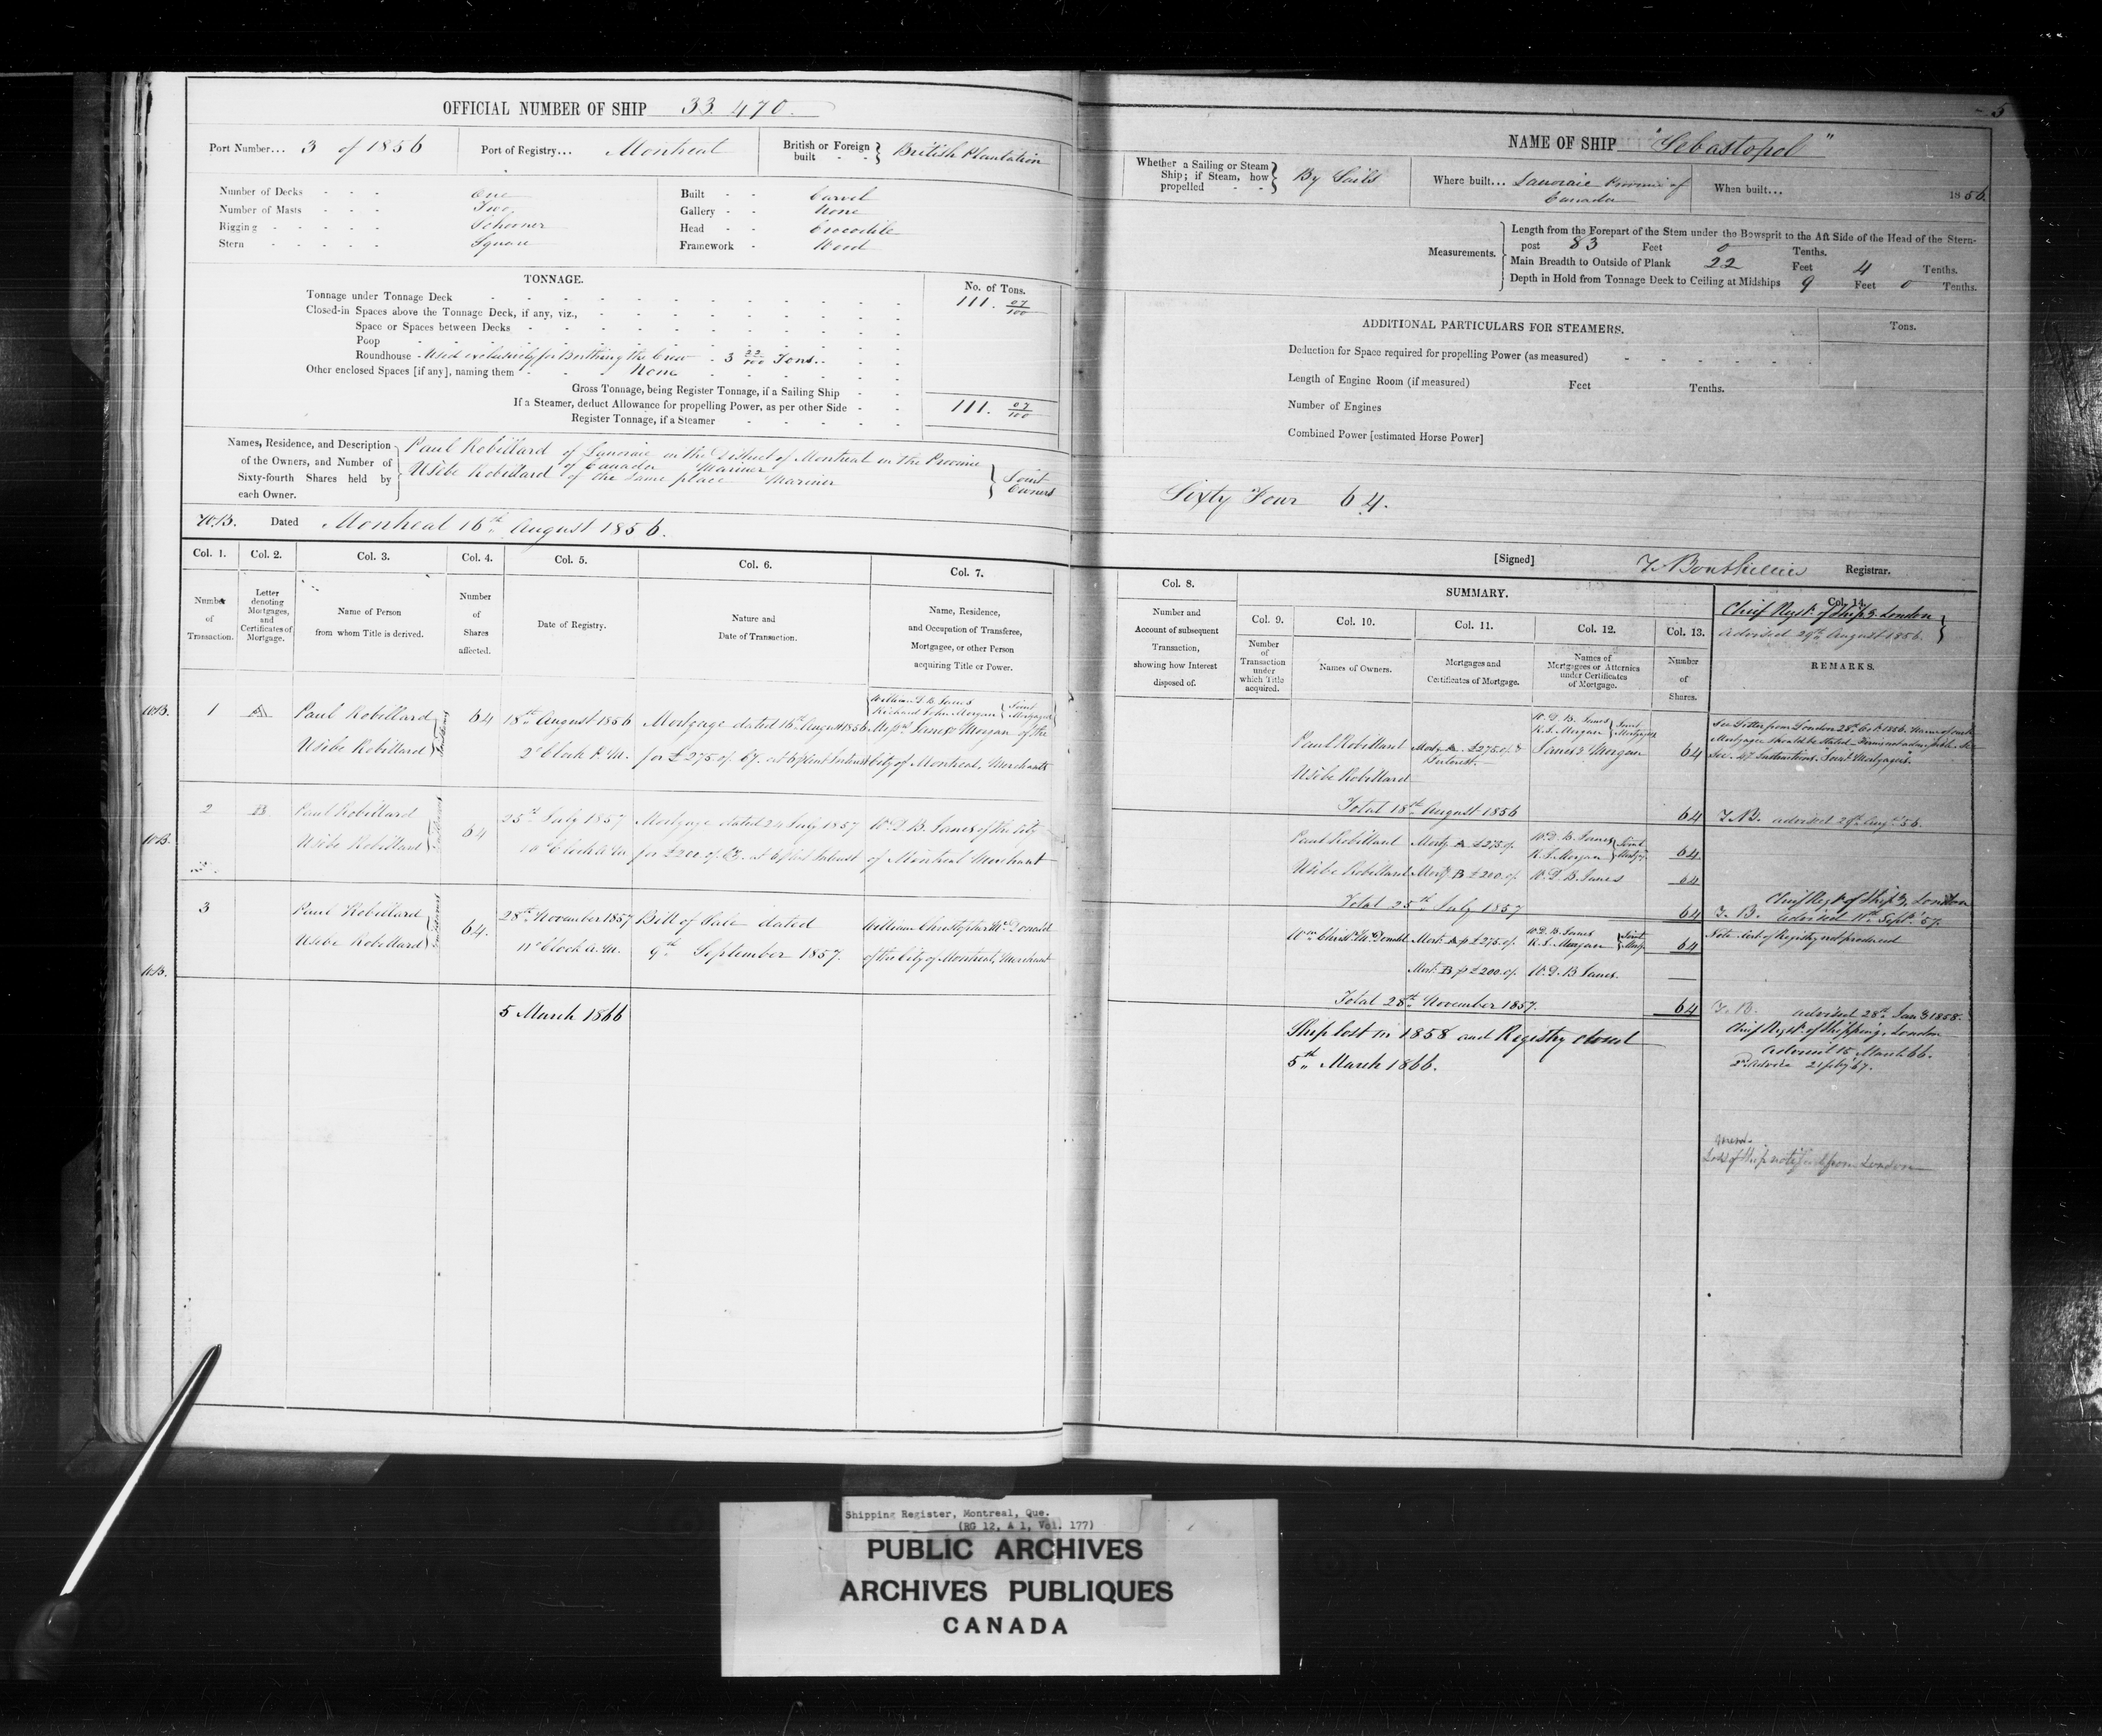 OFFICIAL NUMBER OF SHIP 33.470.
Port Number... 3 of 1856
Port of Registry... Montreal
British or Foreign built - - } British Plantation
Number of Decks - - - One
Number of Masts - - - Two
Rigging - - - - - Schooner
Stern - - - - - Square
Built - - Carvel
Gallery - - None
Head - - Crocodile
Framework - Wood
TONNAGE.
No. of Tons.
Tonnage under Tonnage Deck 111. 07/100
Closed-in Spaces above the Tonnage Deck, if any, viz.,
Space or Spaces between Decks
Poop
Roundhouse - Used exclusively for Berthing the Crew - 3 22/100 Tons.
Other enclosed Spaces [if any], naming them - None
Gross Tonnage, being Register Tonnage, if a Sailing Ship
If a Steamer, deduct Allowance for propelling Power, as per other Side - 111. 07/100
Register Tonnage, if a Steamer
Names, Residence, and Description of the Owners, and Number of Sixty-fourth Shares held by each Owner.
Paul Robillard of Lanoraie in the District of Montreal in the Province
of Canada Mariner
Usibe Robillard of the same place Mariner
Joint Owners
Dated Montreal 16th August 1856.
Col. 1. Col. 2. Col. 3. Col. 4. Col. 5. Col. 6. Col. 7.
Number of Transaction.
Letter denoting Mortgages, and Certificates of Mortgage.
Name of Person from whom Title is derived.
Number of Shares affected.
Date of Registry.
Nature and Date of Transaction.
Name, Residence, and Occupation of Transferee, Mortgagee, or other Person acquiring Title or Power.
William D. B. Janes
Richard John Morgan } Joint Mortgagees
1 A Paul Robillard 64 18th August 1856 Mortgage dated 16th August 1856 Messrs Janes & Morgan of the
Usibe Robillard 2 o'Clock P.M. for £275 of Cy. at 6 p Cent Interest City of Montreal, Merchants
2 B Paul Robillard 64 25th July 1857 Mortgage dated 24 July 1857 W. D. B. Janes of the City
Usibe Robillard 10 o'Clock A.M. for £200 of Cy. at 6 p Cent Interest of Montreal Merchant
3 Paul Robillard 64. 28th November 1857 Bill of Sale dated William Christopher McDonald
Usibe Robillard 11 o'Clock A.M. 9th September 1857. of the City of Montreal, Merchant
5 March 1866
5
NAME OF SHIP "Sebastopol"
Whether a Sailing or Steam Ship; if Steam, how propelled - - } By Sails
Where built... Lanoraie Province of Canada
When built... 1856.
Measurements.
Length from the Forepart of the Stem under the Bowsprit to the Aft Side of the Head of the Stern-
post 83 Feet 0 Tenths.
Main Breadth to Outside of Plank 22 Feet 4 Tenths.
Depth in Hold from Tonnage Deck to Ceiling at Midships 9 Feet 0 Tenths.
ADDITIONAL PARTICULARS FOR STEAMERS.
Tons.
Deduction for Space required for propelling Power (as measured)
Length of Engine Room (if measured) Feet Tenths.
Number of Engines
Combined Power [estimated Horse Power]
Sixty Four 64.
[Signed] T. Bouthillier Registrar.
Col. 8.
Number and Account of subsequent Transaction, showing how Interest disposed of.
SUMMARY.
Col. 9. Col. 10. Col. 11. Col. 12. Col. 13. Col. 14.
Number of Transaction under which Title acquired.
Names of Owners.
Mortgages and Certificates of Mortgage.
Names of Mortgagees or Attornies under Certificates of Mortgage.
Number of Shares.
Chief Regr. of Shipg. London
advised 29th August 1856.
REMARKS.
W. D. B. Janes
R. J. Morgan } Joint Mortgagees
Paul Robillard Mortg. A. £275 of & Interest Janes & Morgan 64
Usibe Robillard
See Letter from London 28th Oct. 1856. Names of each
Mortgagee should be stated
Sec. 47 Instructions. Joint Mortgagees.
Total 18th August 1856 64 T.B. advised 29th Augt. 56.
Paul Robillard Mortg. A £275 of W. D. B. Janes
R. J. Morgan } Joint Mortgs. 64
Usibe Robillard Mortg. B £200 of W. D. B. Janes 64
Total 25th July 1857 64
Chief Regr. of Shipg. London
T. B. advised 11th Sept. 57.
Wm. Christ. McDonald Mort. A p £275 of W. D. B. Janes
R. J. Morgan } Joint Mortgs. 64
Note. Cert. of Registry not produced
Mort. B p £200 of W. D. B. Janes.
Total 28th November 1857. 64
T.B. advised 28th Jany 1858.
Ship lost in 1858 and Registry closed
5th March 1866.
Chief Regr. of Shipping, London
advised 15 March 66.
2d Advice 21 feby 67.
Mem.
Loss of Ship notified from London
Shipping Register, Montreal, Que.
(RG 12, A 1, Vol. 177)
PUBLIC ARCHIVES
ARCHIVES PUBLIQUES
CANADA